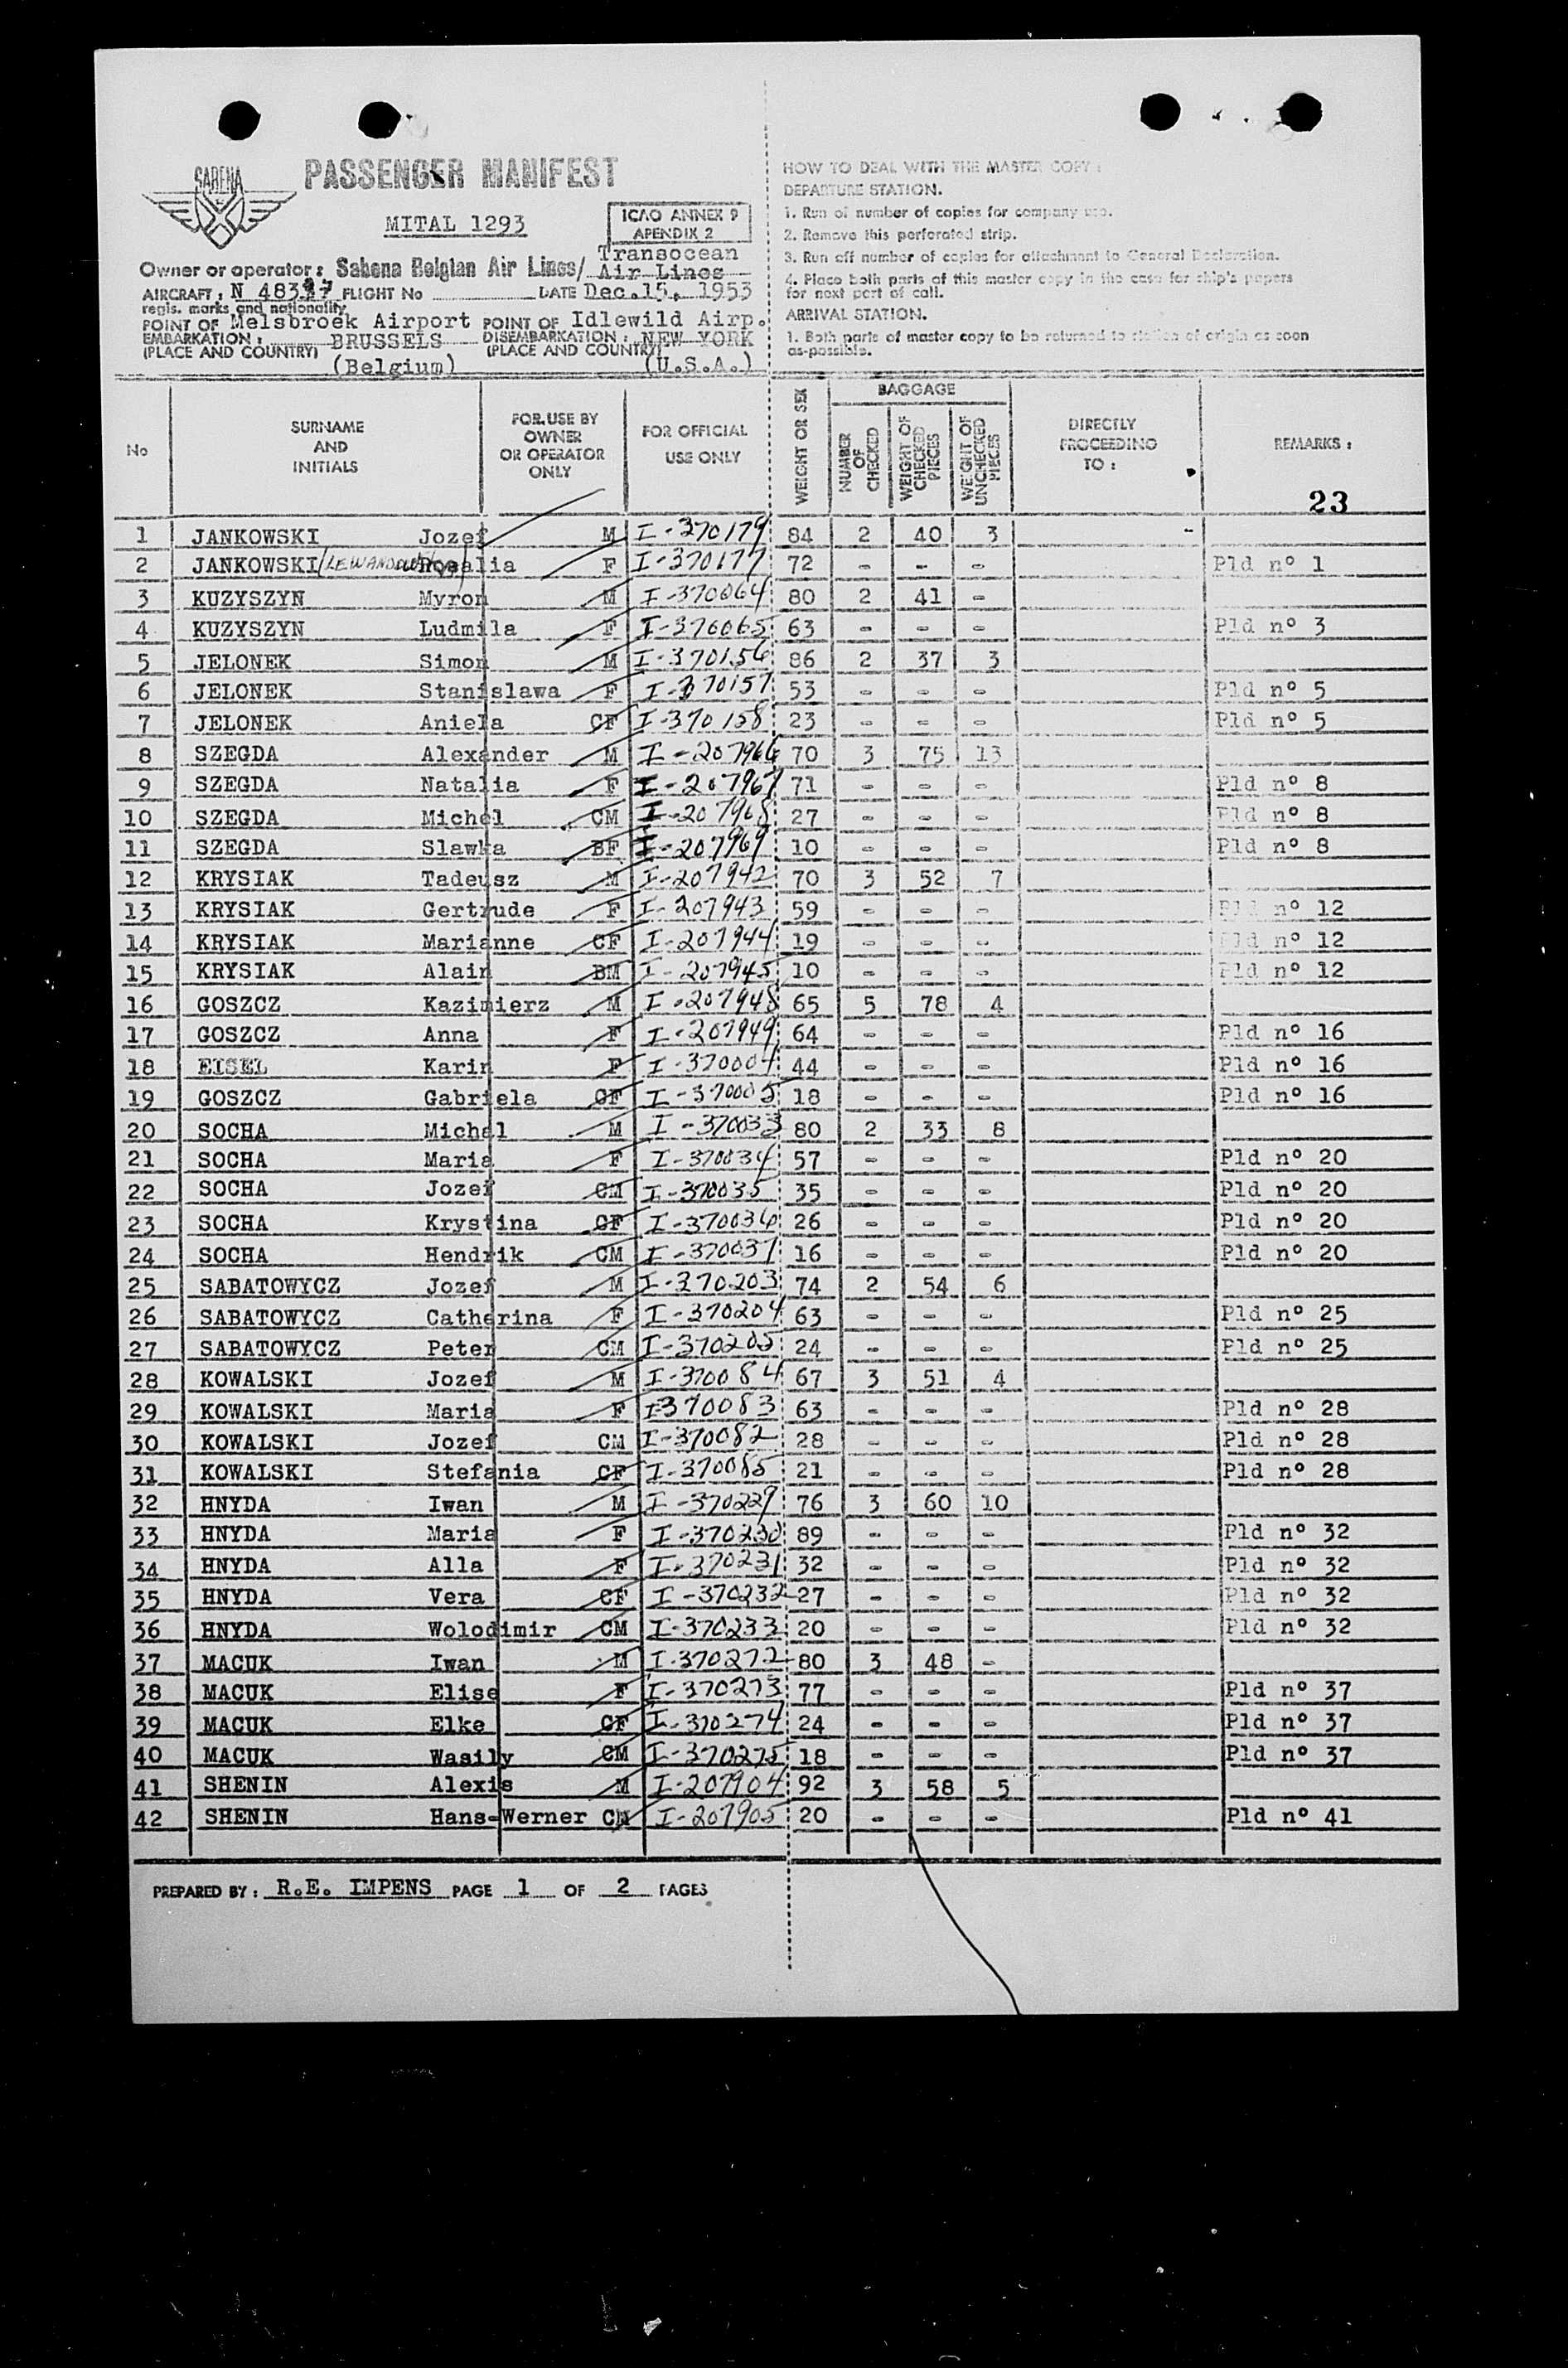 SABENA
PASSENGER MANIFEST
MITAL 1293
ICAO ANNEX 9
APENDIX 2
Owner or operator : Sabena Belgian Air Lines/ Transocean Air Lines
AIRCRAFT : N 48337 FLIGHT No DATE Dec.15. 1953
regis. marks and nationality
POINT OF EMBARKATION : (PLACE AND COUNTRY) Melsbroek Airport BRUSSELS (Belgium)
POINT OF DISEMBARKATION : (PLACE AND COUNTRY) Idlewild Airp. NEW YORK (U.S.A.)
HOW TO DEAL WITH THE MASTER COPY :
DEPARTURE STATION.
1. Run of number of copies for company use.
2. Remove this perforated strip.
3. Run off number of copies for attachment to General Declaration.
4. Place both parts of this master copy in the case for ship's papers
for next port of call.
ARRIVAL STATION.
1. Both parts of master copy to be returned to station of origin as soon
as-possible.
No SURNAME AND INITIALS FOR USE BY OWNER OR OPERATOR ONLY FOR OFFICIAL USE ONLY WEIGHT OR SEX BAGGAGE NUMBER OF CHECKED WEIGHT OF CHECKED PIECES WEIGHT OF UNCHECKED PIECES DIRECTLY PROCEEDING TO : REMARKS :
23
1 JANKOWSKI Jozef M I-370179 84 2 40 3 -
2 JANKOWSKI Rosalia F I-370177 72 - - - Pld n° 1
3 KUZYSZYN Myron M I-370064 80 2 41 -
4 KUZYSZYN Ludmila F I-370065 63 - - - Pld n° 3
5 JELONEK Simon M I-370156 86 2 37 3
6 JELONEK Stanislawa F I-370157 53 - - - Pld n° 5
7 JELONEK Aniela CF I-370158 23 - - - Pld n° 5
8 SZEGDA Alexander M I-207966 70 3 75 13
9 SZEGDA Natalia F I-207967 71 - - - Pld n° 8
10 SZEGDA Michel CM I-207968 27 - - - Pld n° 8
11 SZEGDA Slawka BF I-207969 10 - - - Pld n° 8
12 KRYSIAK Tadeusz M I-207942 70 3 52 7
13 KRYSIAK Gertrude F I-207943 59 - - - Pld n° 12
14 KRYSIAK Marianne CF I-207944 19 - - - Pld n° 12
15 KRYSIAK Alain BM I-207945 10 - - - Pld n° 12
16 GOSZCZ Kazimierz M I-207948 65 5 78 4
17 GOSZCZ Anna F I-207949 64 - - - Pld n° 16
18 EISEL Karin F I-370004 44 - - - Pld n° 16
19 GOSZCZ Gabriela CF I-370005 18 - - - Pld n° 16
20 SOCHA Michal M I-370033 80 2 33 8
21 SOCHA Maria F I-370034 57 - - - Pld n° 20
22 SOCHA Jozef CM I-370035 35 - - - Pld n° 20
23 SOCHA Krystina CF I-370036 26 - - - Pld n° 20
24 SOCHA Hendrik CM I-370037 16 - - - Pld n° 20
25 SABATOWYCZ Jozef M I-370203 74 2 54 6
26 SABATOWYCZ Catherina F I-370204 63 - - - Pld n° 25
27 SABATOWYCZ Peter CM I-370205 24 - - - Pld n° 25
28 KOWALSKI Jozef M I-370084 67 3 51 4
29 KOWALSKI Maria F I-370083 63 - - - Pld n° 28
30 KOWALSKI Jozef CM I-370082 28 - - - Pld n° 28
31 KOWALSKI Stefania CF I-370085 21 - - - Pld n° 28
32 HNYDA Iwan M I-370229 76 3 60 10
33 HNYDA Maria F I-370230 89 - - - Pld n° 32
34 HNYDA Alla F I-370231 32 - - - Pld n° 32
35 HNYDA Vera CF I-370232 27 - - - Pld n° 32
36 HNYDA Wolodimir CM I-370233 20 - - - Pld n° 32
37 MACUK Iwan M I-370272 80 3 48 -
38 MACUK Elise F I-370273 77 - - - Pld n° 37
39 MACUK Elke CF I-370274 24 - - - Pld n° 37
40 MACUK Wasily CM I-370275 18 - - - Pld n° 37
41 SHENIN Alexis M I-207904 92 3 58 5
42 SHENIN Hans-Werner CM I-207905 20 - - - Pld n° 41
PREPARED BY : R.E. IMPENS PAGE 1 OF 2 PAGES